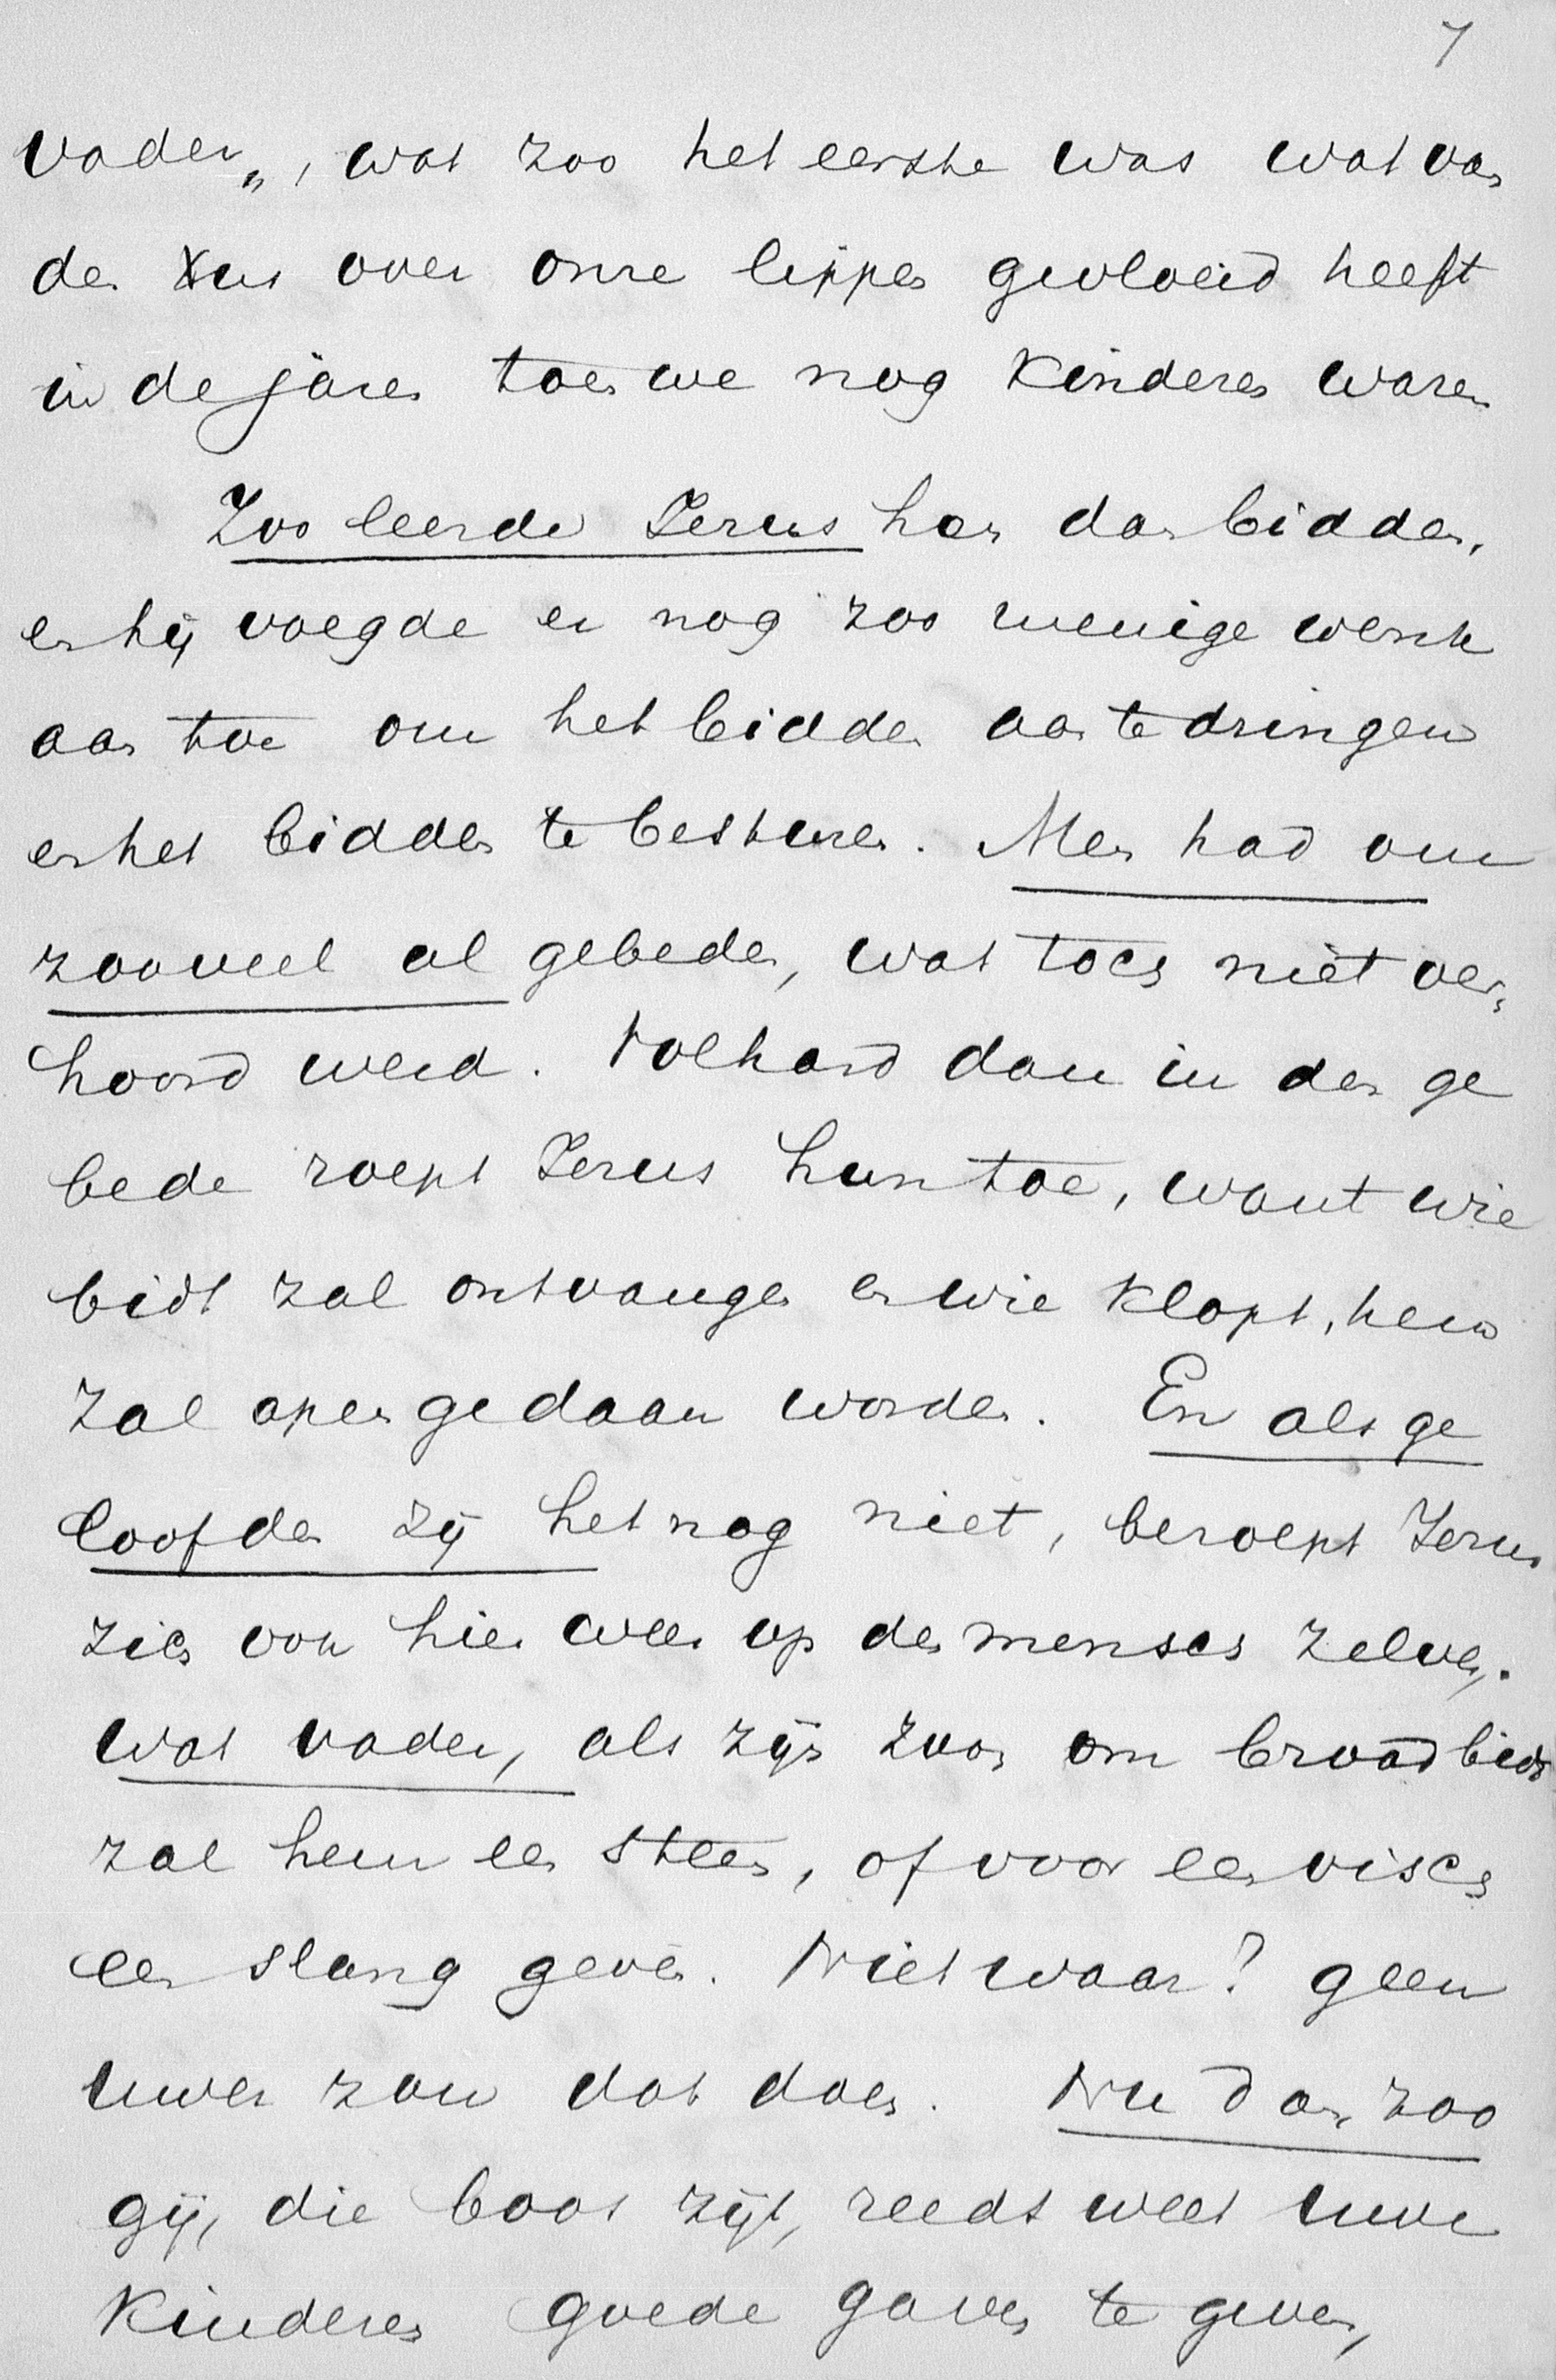 7
Vader„, wat zoo het eerste was wat van
den Xus over onze lippen gevloeid heeft
in de jaren toen we nog kinderen waren
Zoo leerde Jezus hen dan bidden,
en hij voegde er nog zoo menige wenk
aan toe om het bidden aan te dringen
en het bidden te besturen. Men had om
zooveel al gebeden, wat toch niet ver„
hoord werd. Volhard dan in den ge
bede roept Jezus hun toe, want wie
bidt zal ontvangen en wie klopt, hem
zal opengedaan worden. En als ge
loofden zij het nog niet, beroept Jezus
zich ook hier weer op den mensch zelven.
Wat vader, als zijn zoon om brood bidt
zal hem een steen, of voor een visch
een slang geven. Niet waar? geen
uwer zou dat doen. Nu dan zoo
gij, die boos zijt, reeds weet uwe
kinderen goede gaven te geven,